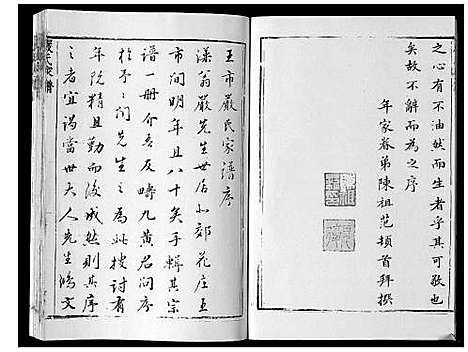 之心有不油然而生者乎其可敬也
矣故不辭而為之序
年家眷弟陳祖范頓首拜撰
王市嚴氏家譜序
漾翁嚴先生世居北郊花庄王
市間明年且八十矣手輯其宗
譜一冊介吾友疇九黃君問序
於予予問先生之為此搜討有
年既精且勤而後成然則其序
之者宜謁當世大人先生脩文
嚴氏家譜